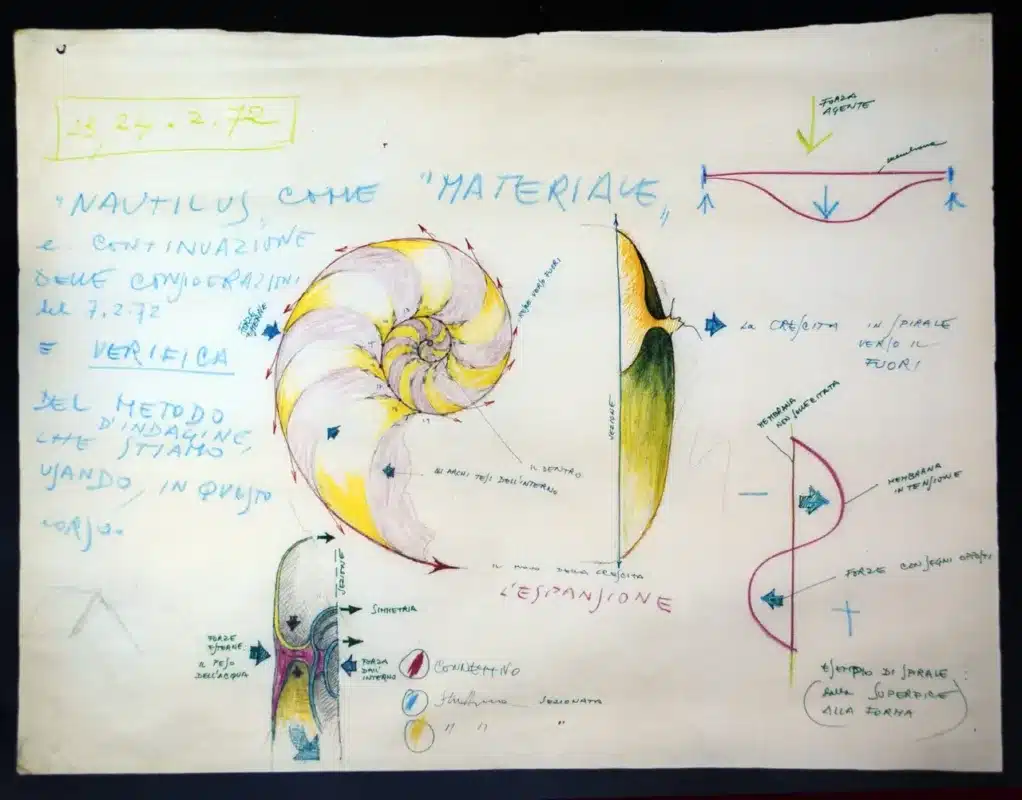 23, 24.2.72
"NAUTILUS, COME "MATERIALE„
e CONTINUAZIONE
DELLE CONSIDERAZIONI
del 7.2.72
E VERIFICA
DEL METODO
D'INDAGINE,
CHE STIAMO
USANDO, IN QUESTO
CORSO.
FORZA
AGENTE
membrana
FORZE
ESTERNE
VERSO FUORI
SEZIONE
LA CRESCITA IN SPIRALE
VERSO IL
FUORI
MEMBRANA
NON SOLLECITATA
MEMBRANA
IN TENSIONE
–
FORZE CON SEGNI OPPOSTI
+
IL DENTRO
GLI ARCHI TESI DELL'INTERNO
IL DELLA CRESCITA
L'ESPANSIONE
SEZIONE
SIMMETRIA
FORZE
ESTERNE
IL PESO
DELL'ACQUA
FORZA
DALL'
INTERNO
CONNETTIVO
Struttura SEZIONATA
" " "
ESEMPIO DI SPIRALE
dalla SUPERFICE
ALLA FORMA